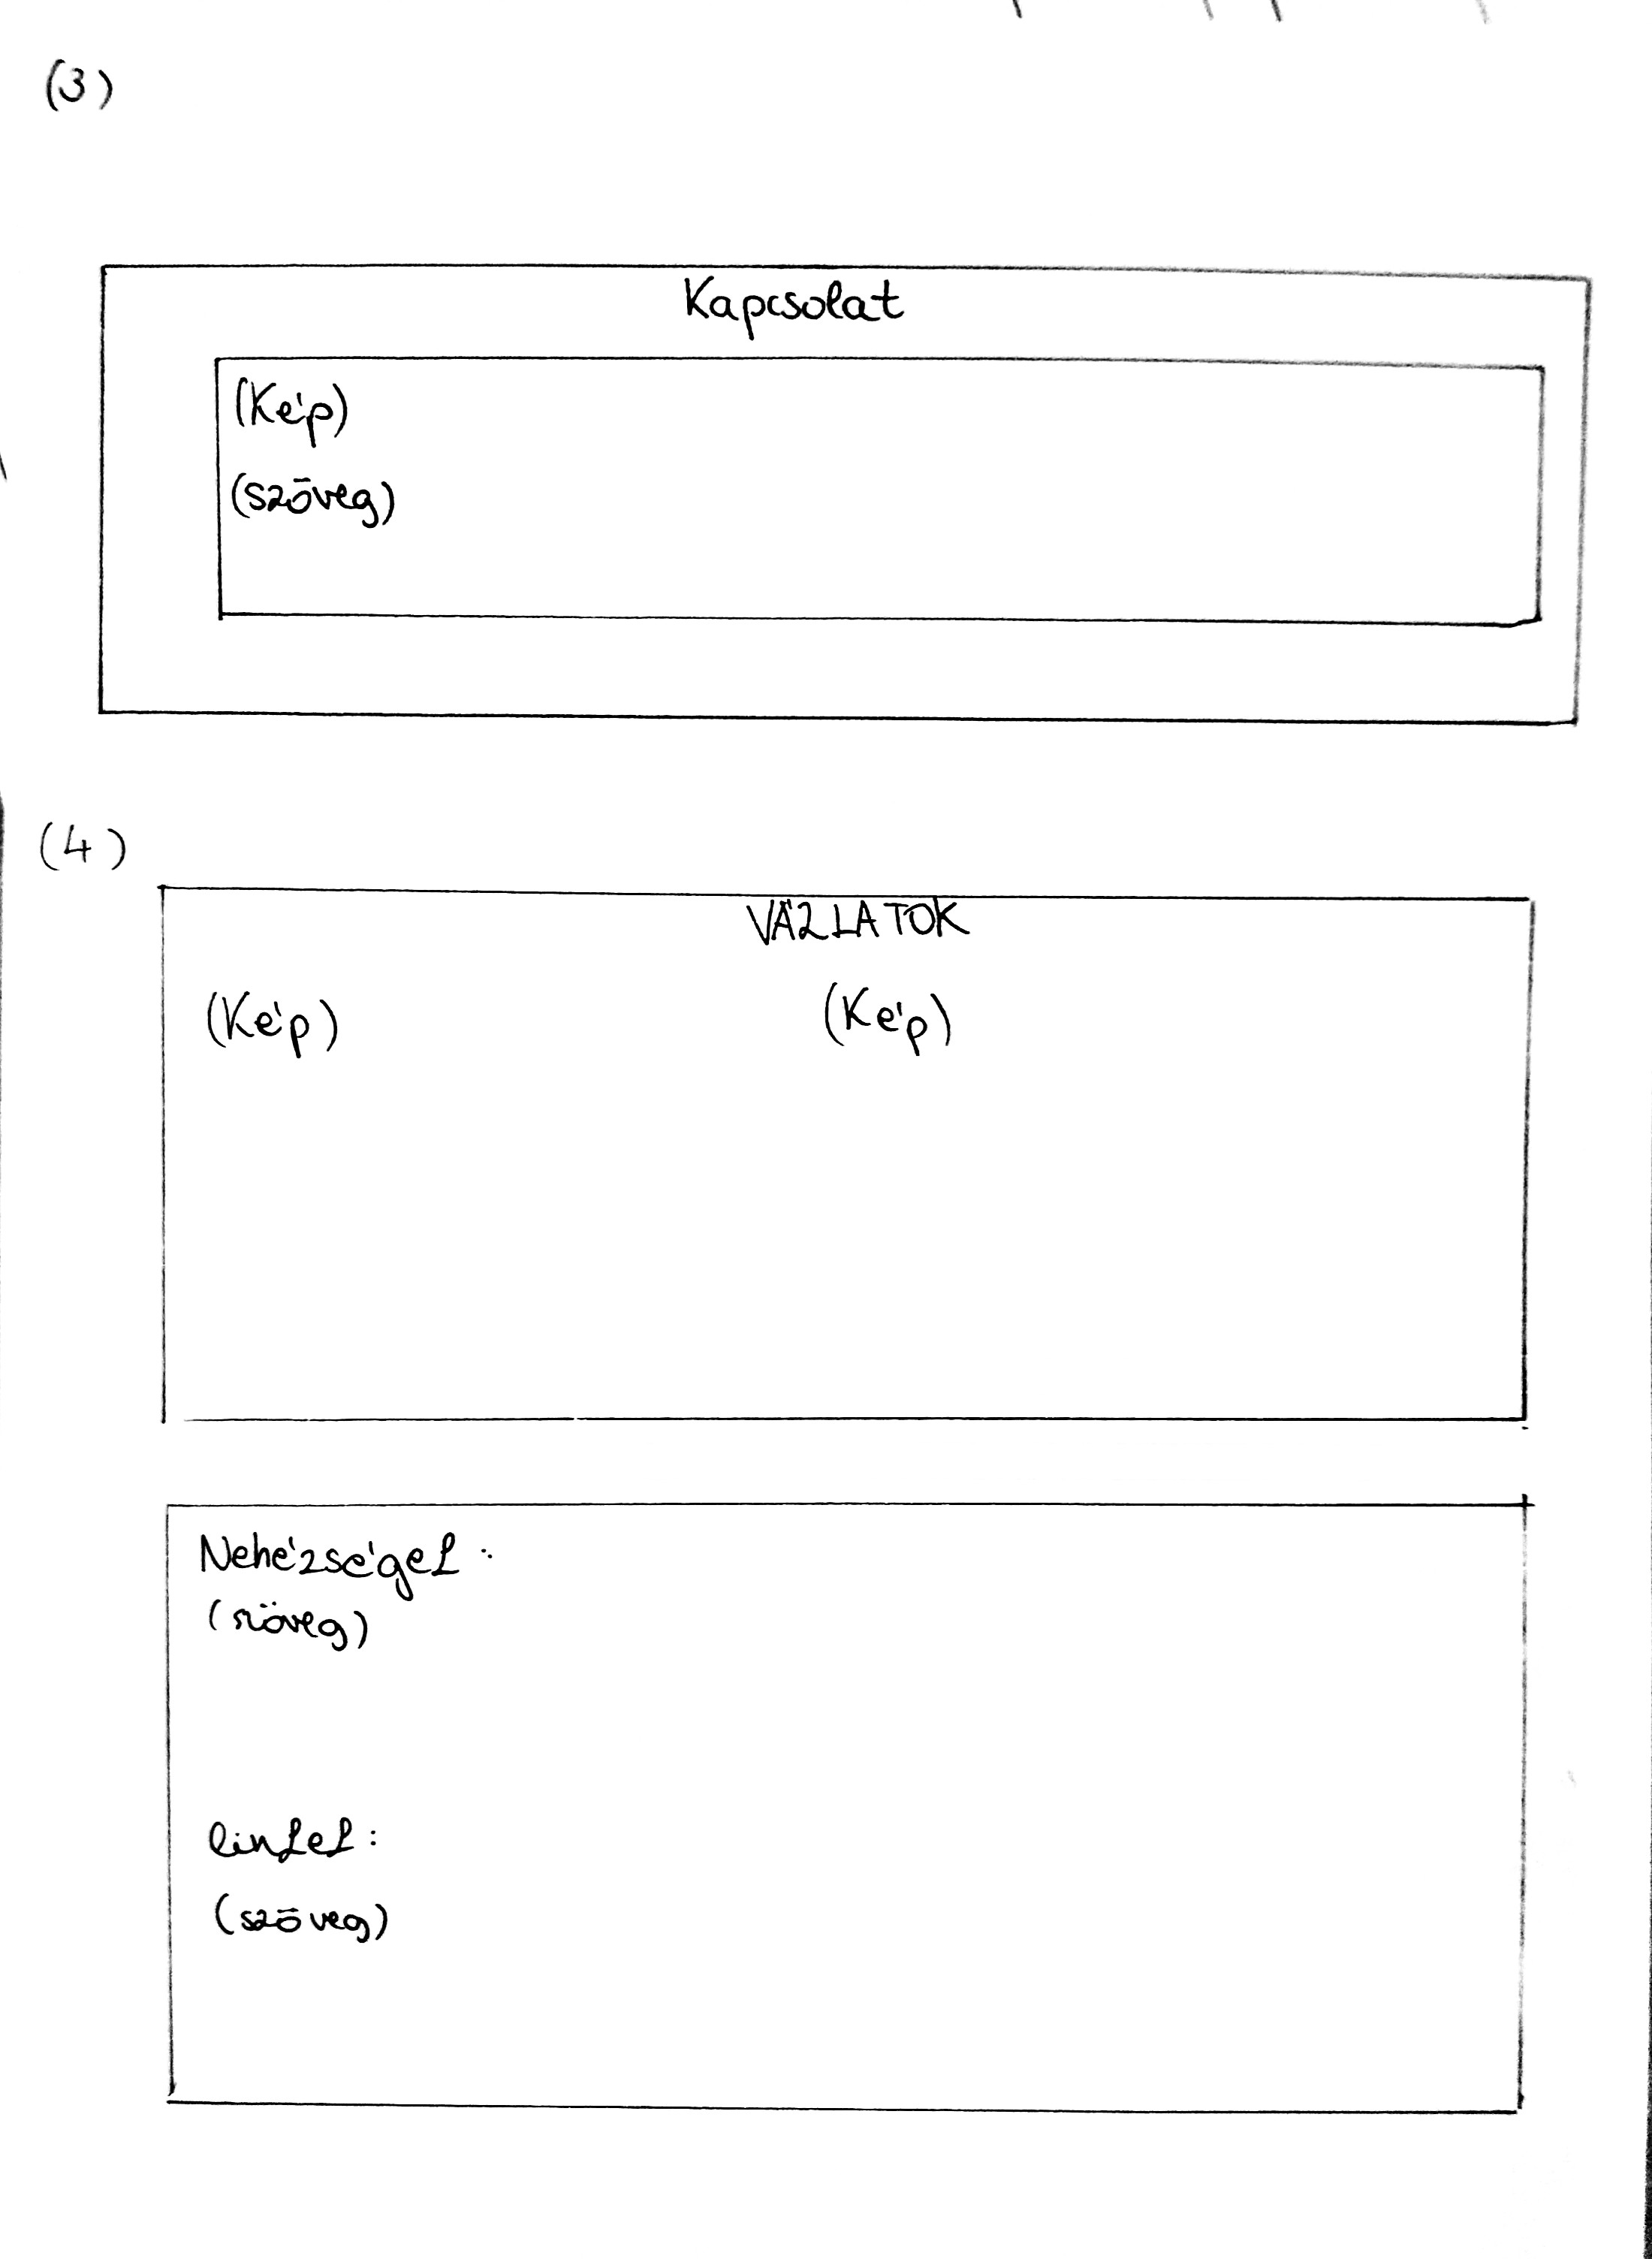 (3)
Kapcsolat
(Kép)
(szöveg)
(4)
VÁZLATOK
(Kép) (Kép)
Nehézségek:
(szöveg)
linkek:
(szöveg)